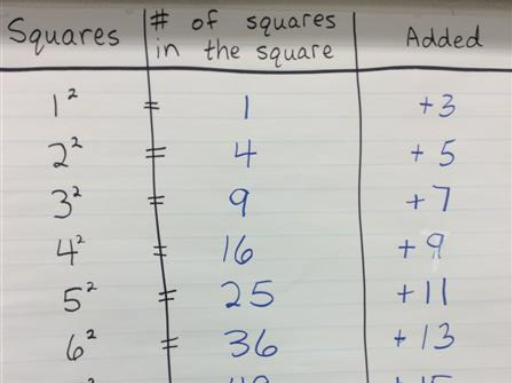 Squares # of squares in the square Added
1² = 1 +3
2² = 4 +5
3² = 9 +7
4² = 16 +9
5² = 25 +11
6² = 36 +13